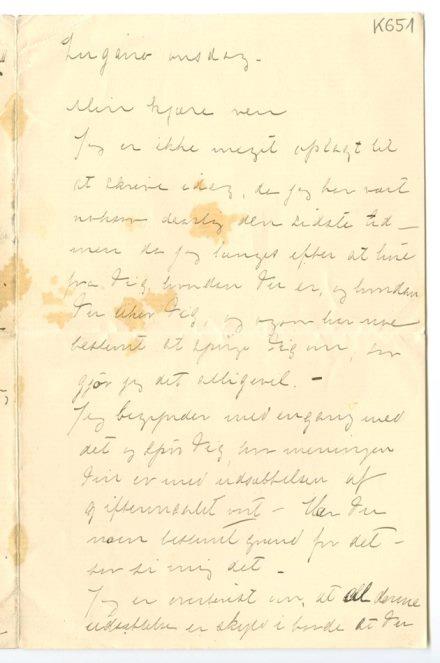 K651
Lugano onsdag.
Min kjære ven
Jeg er ikke meget oplagt til
at skrive idag, da jeg har vært
noksaa daarlig den sidste tid –
men da jeg længes efter at høre
fra Dig, hvordan Du er, og hvordan
Du har Dig, og ogsaa har noe
bestemt at spørge Dig om, saa
gjør jeg det alligevel. –
Jeg begynder med engang med
det og spør Dig, hva meningen
Din er med udsættelsen af
giftermaalet vort – Har Du
noen bestemt grund for det –
saa si mig det –
Jeg er overbevist om, at all denne
udsættelse er skyld i baade at Du